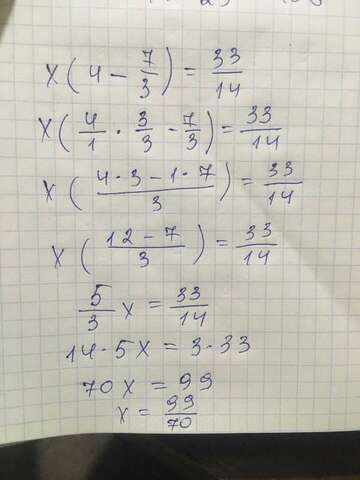 x ( 4 - 7/3 ) = 33/14
x ( 4/1 · 3/3 - 7/3 ) = 33/14
x ( (4 · 3 - 1 · 7)/3 ) = 33/14
x ( (12 - 7)/3 ) = 33/14
5/3 x = 33/14
14 · 5x = 3 · 33
70x = 99
x = 99/70